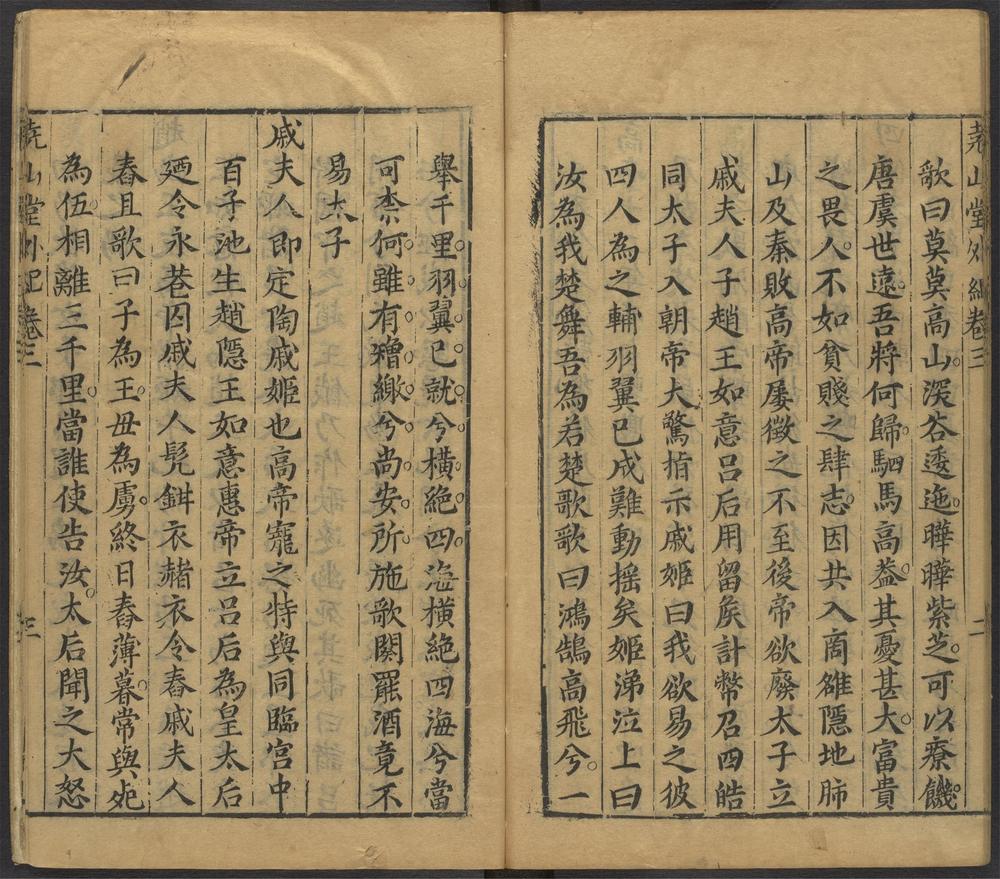 堯山堂外紀卷三
二
歌曰莫莫高山深谷逶迤曄曄紫芝可以療饑
唐虞世遠吾將何歸駟馬高葢其憂甚大富貴
之畏人不如貧賤之肆志因共入商雒隱地肺
山及秦敗高帝屢徵之不至後帝欲廢太子立
戚夫人子趙王如意呂后用留矦計幣召四皓
同太子入朝帝大驚指示戚姬曰我欲易之彼
四人為之輔羽翼已成難動搖矣姬涕泣上曰
汝為我楚舞吾為若楚歌歌曰鴻鵠高飛兮一
舉千里羽翼已就兮橫絶四海橫絶四海兮當
可柰何雖有矰繳兮尚安所施歌闋罷酒竟不
易太子
戚夫人即定陶戚姬也高帝寵之特與同臨宫中
百子池生趙隱王如意惠帝立呂后為皇太后
廼令永巷囚戚夫人髠鉗衣赭衣令舂戚夫人
舂且歌曰子為王母為虜終日舂薄暮常與死
為伍相離三千里當誰使告汝太后聞之大怒
堯山堂外紀卷三
三